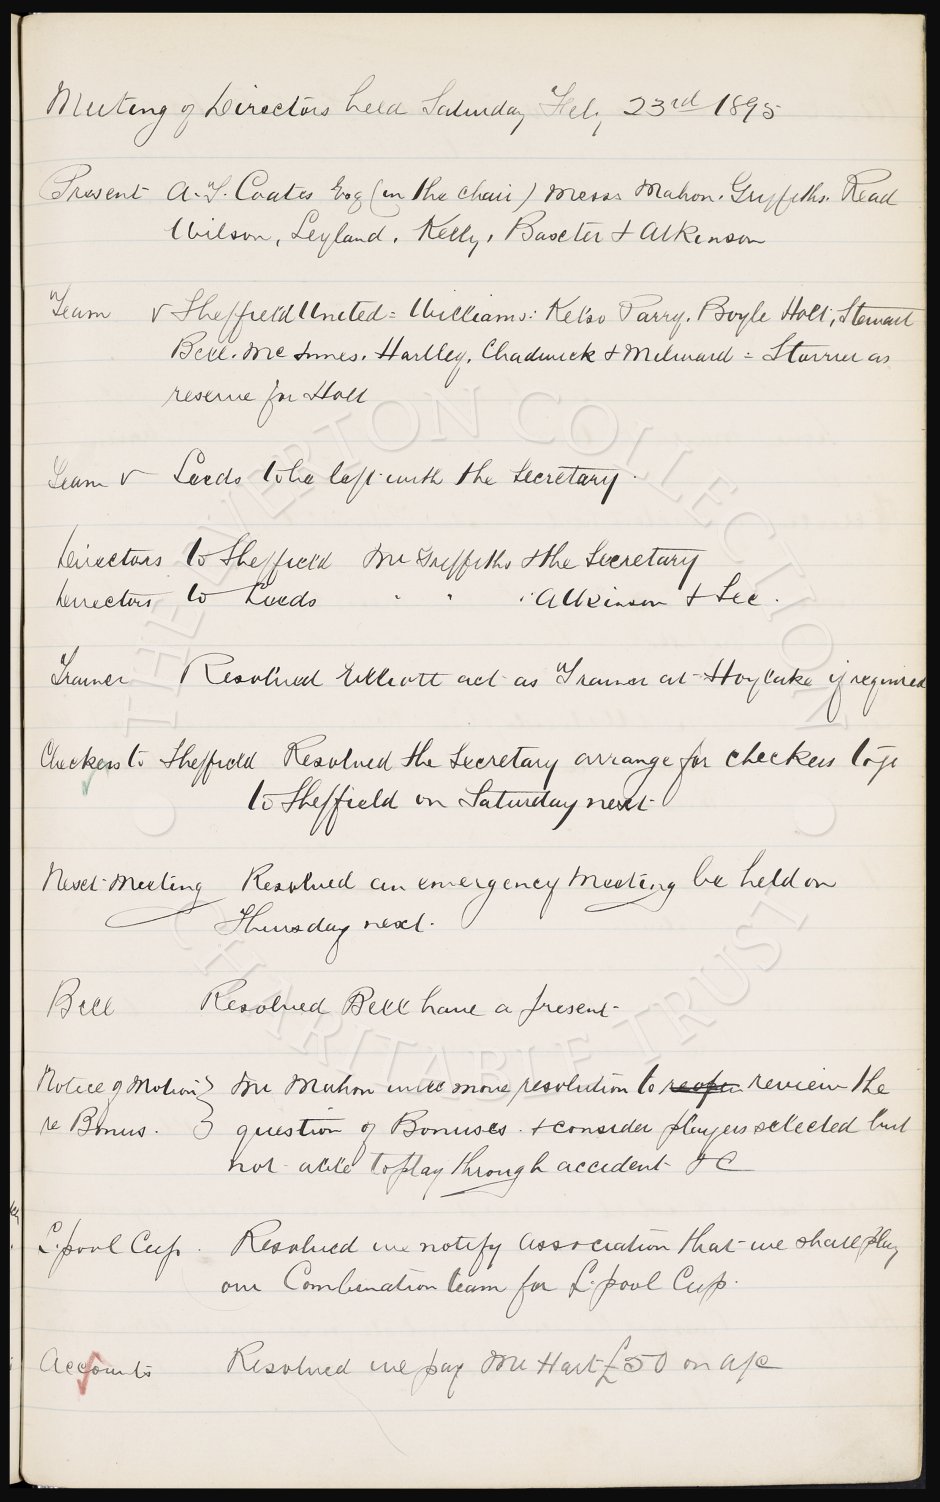 Meeting of Directors held Saturday Feb, 23rd 1895
Present A. T. Coates Esq (in the chair) Messrs Mahon. Griffiths. Read
Wilson, Leyland, Kelly, Baxter & Atkinson
Team v Sheffield United = Williams: Kelso Parry. Boyle Holt, Stewart
Bell. McInnes. Hartley, Chadwick & Milward = Storrier as
reserve for Holt
Team v Leeds to be left with the Secretary.
Directors to Sheffield Mr Griffiths & the Secretary
Directors to Leeds " " " Atkinson & Sec.
Trainer Resolved Elliott act as Trainer at Hoylake if required
Checkers to Sheffield Resolved the Secretary arrange for checkers to go
to Sheffield on Saturday next
Next Meeting Resolved an emergency Meeting be held on
Thursday next.
Bell Resolved Bell have a present
Notice of Motion } Mr Mahon will move resolution to reopen review the
re Bonus. question of Bonuses. & consider players selected but
not able to play through accident &C
L.pool Cup. Resolved we notify Association that we shall play
our Combination team for L.pool Cup.
Accounts Resolved we pay Mr Hart £50 on a/c
THE EVERTON COLLECTION
CHARITABLE TRUST